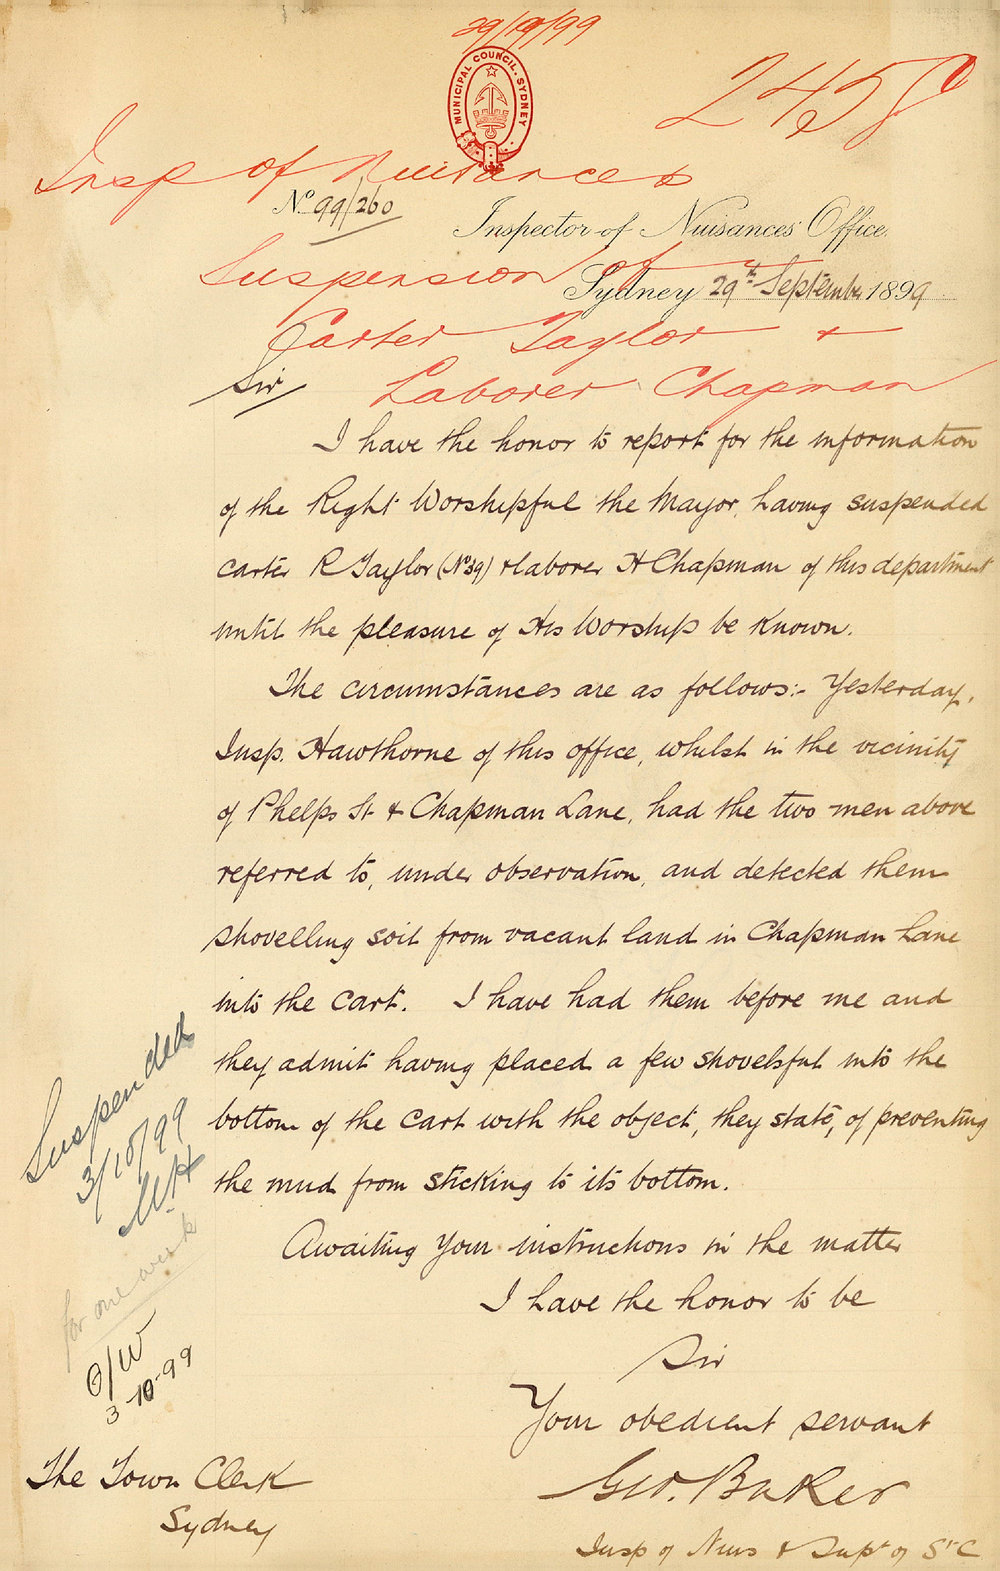 29/19/99
MUNICIPAL COUNCIL. SYDNEY
2458
Insp of Nuisances
No 99/260
Inspector of Nuisances Office.
Suspension of
Sydney 29th September 1899
Carter Taylor &
Sir
Laborer Chapman
I have the honor to report for the information
of the Right Worshipful the Mayor, having suspended
carter R Taylor (No 39) & laborer H Chapman of this department
until the pleasure of His Worship be known.
The circumstances are as follows:- Yesterday,
Insp. Hawthorne of this office, whilst in the vicinity
of Phelps St & Chapman Lane, had the two men above
referred to, under observation, and detected them
shovelling soil from vacant land in Chapman Lane
into the cart. I have had them before me and
they admit having placed a few shovelsful into the
bottom of the cart with the object, they state, of preventing
the mud from sticking to its bottom.
Awaiting your instructions in the matter
I have the honor to be
Sir
Your obedient servant
Geo. Baker
Insp of Nuis & Supt of St C
Suspended
3/10/99
for one week
3-10-99
The Town Clerk
Sydney